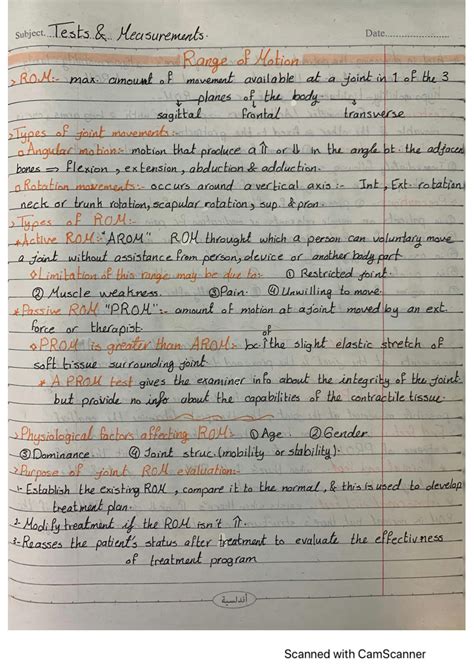 Subject. Tests & Measurements. Date....................
Range of Motion
> ROM:- max. amount of movement available at a joint in 1 of the 3
planes of the body
sagittal frontal transverse
> Types of joint movements:-
¤ Angular motion:- motion that produce a ⇑ or ⇓ in the angle bt. the adjacent
bones ⇒ flexion, extension, abduction & adduction.
¤ Rotation movements:- occurs around a vertical axis :- Int, Ext. rotation
neck or trunk rotation, scapular rotation, sup. & pron.
> Types of ROM:-
* Active ROM:- "AROM" ROM throught which a person can voluntary move
a joint without assistance from person, device or another body part
◊ Limitation of this range may be due to:- ① Restricted joint
② Muscle weakness. ③ Pain. ④ Unwilling to move.
* Passive ROM "PROM":- amount of motion at a joint moved by an ext.
force or therapist.
◊ PROM is greater than AROM:- bc. of the slight elastic stretch of
soft tissue surrounding joint
* A PROM test gives the examiner info about the integrity of the joint
but provide no info about the capabilities of the contractile tissue.
> Physiological factors affecting ROM:- ① Age. ② Gender
③ Dominance ④ Joint struc. (mobility or stability).
> Purpose of joint ROM evaluation:-
1- Establish the existing ROM, compare it to the normal, & this is used to develop
treatment plan.
2- Modify treatment if the ROM isn't ⇑.
3- Reasses the patient's status after treatment to evaluate the effectivness
of treatment program
أندلسية
Scanned with CamScanner